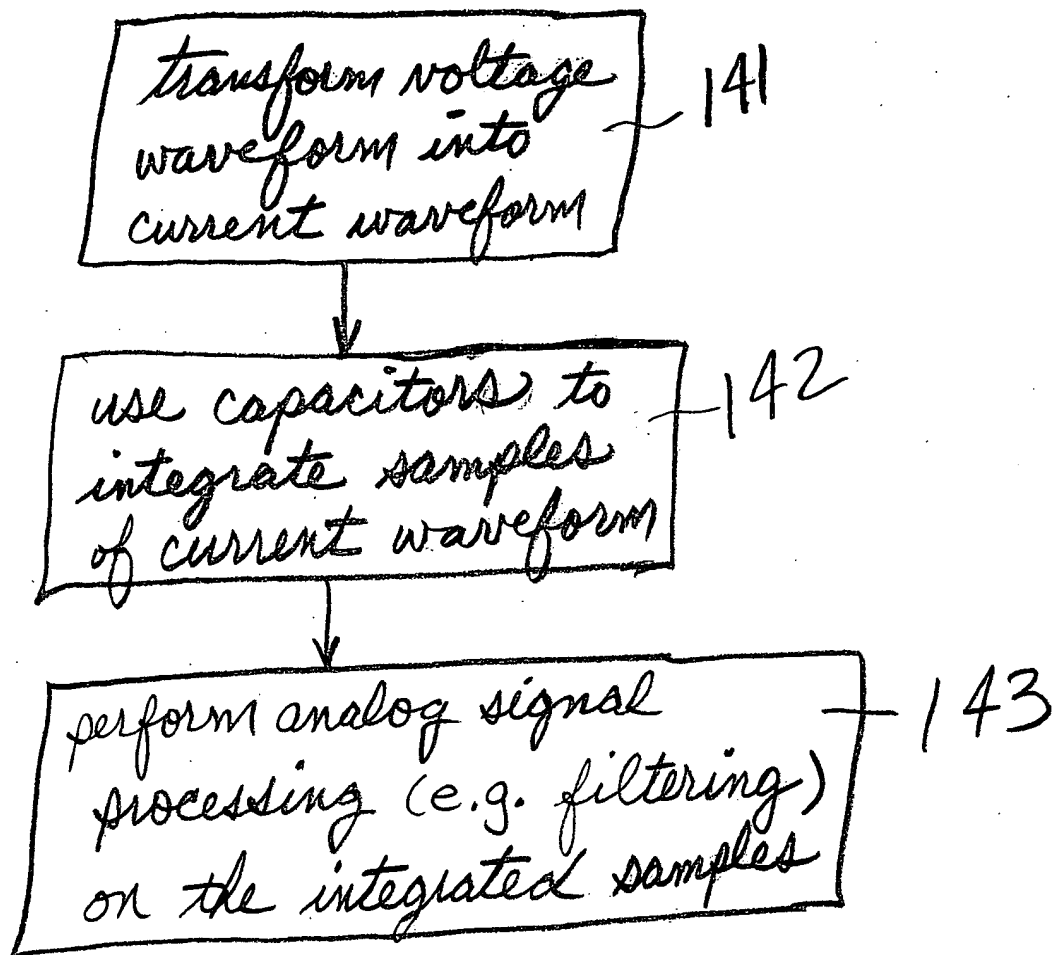 transform voltage
waveform into
current waveform
141
use capacitors to
integrate samples
of current waveform
142
perform analog signal
processing (e.g. filtering)
on the integrated samples
143